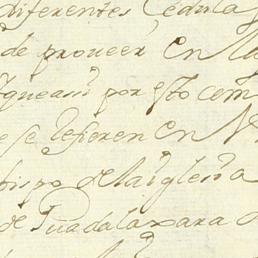 diferentes Cedula
de proueer en la
que assi por esto com
e se refieren en
bispo de la iglesia
de Guadalaxara